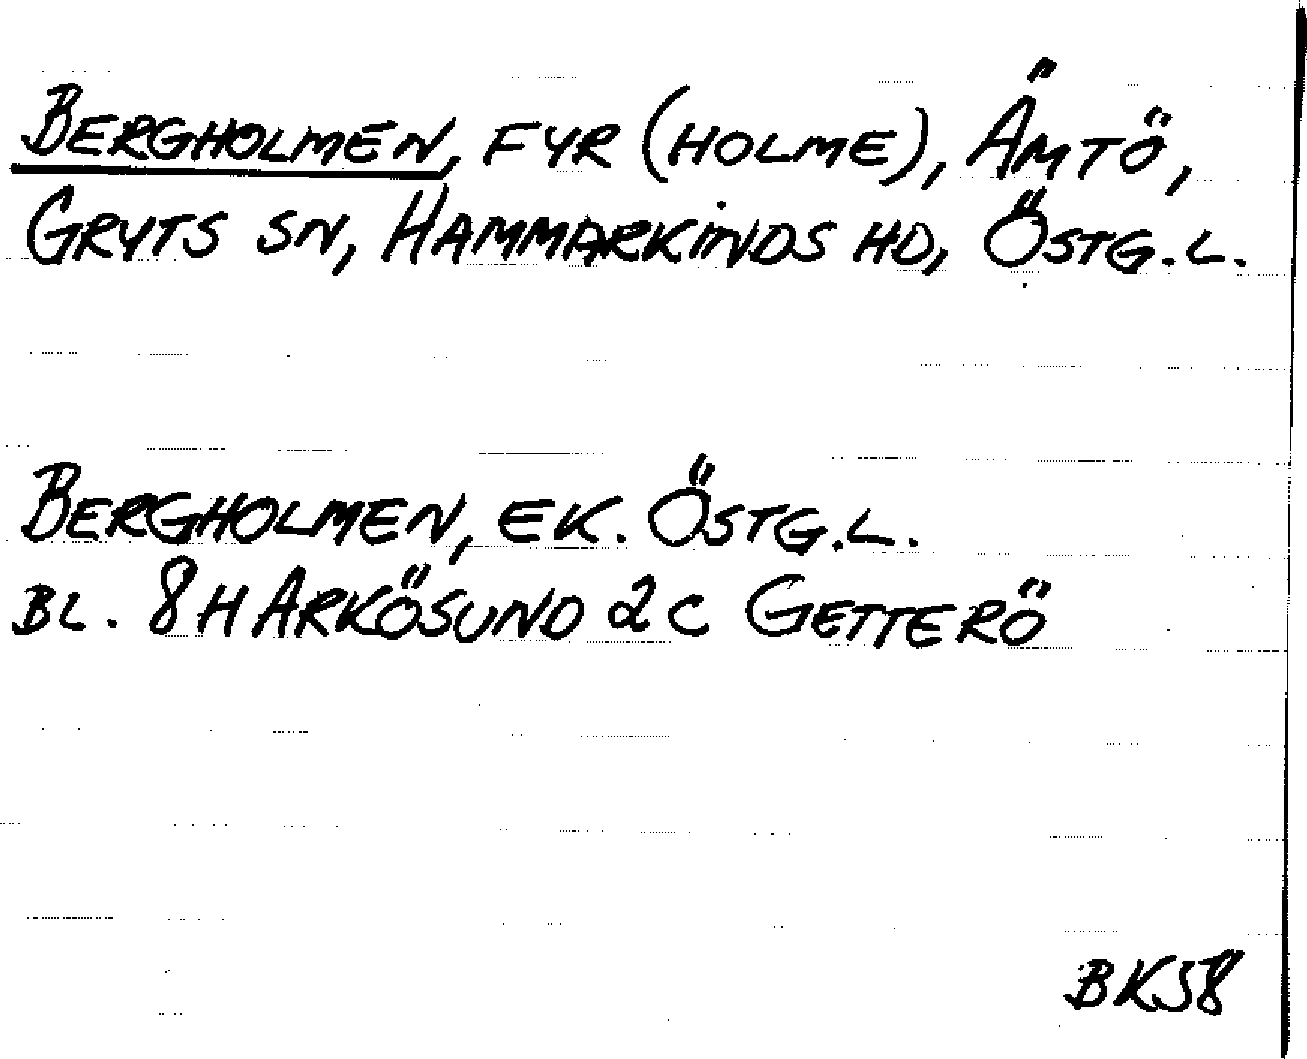 BERGHOLMEN, FYR (HOLME), ÄMTÖ,
GRYTS SN, HAMMARKINDS HD, ÖSTG.L.
BERGHOLMEN, EK. ÖSTG.L.
BL. 8H ARKÖSUND 2C GETTERÖ